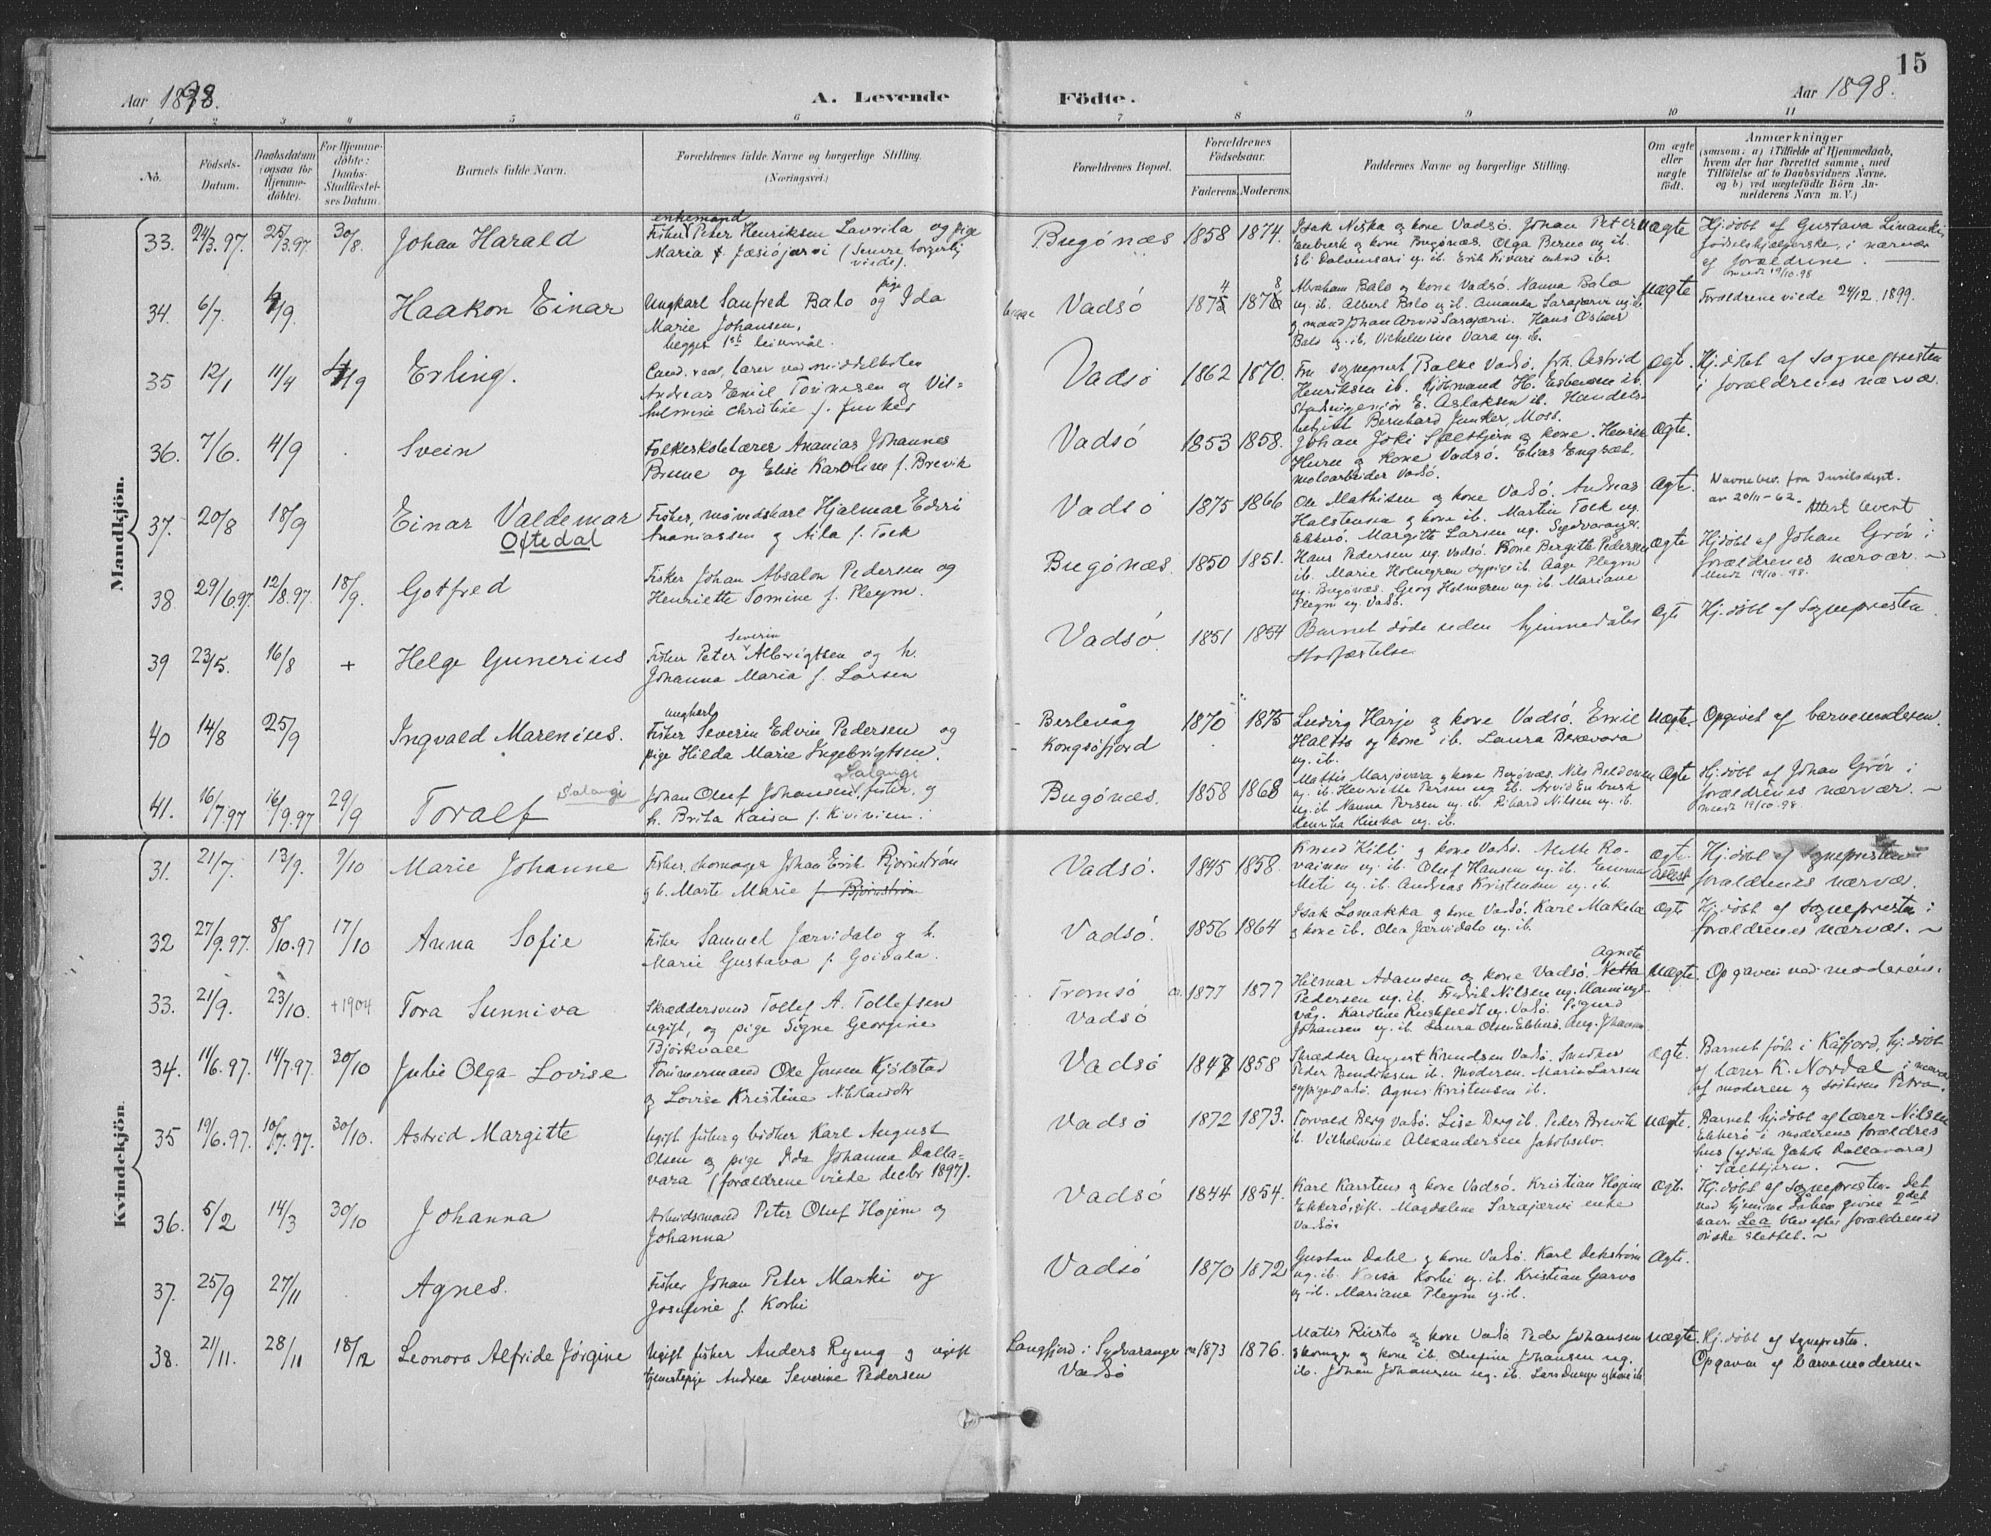 15
Aar 1898.
A. Levende
Födte.
Aar 1898.
1 2 3 4 5 6 7 8 9 10 11
No.
Födsels-
Datum.
Daabsdatum
(ogsaa for
Hjemme-
döbte).
For Hjemme-
döbte:
Daabs-
Stadfæstel-
ses Datum.
Barnets fulde Navn.
Forældrenes fulde Navne og borgerlige Stilling.
(Næringsvei.)
Forældrenes Bopæl.
Forældrenes
Födselsaar.
Faderens.
Moderens.
Faddernes Navne og borgerlige Stilling.
Om ægte
eller
uægte
födt.
Anmærkninger
(saasom: a) i Tilfælde af Hjemmedaab,
hvem der har forrettet samme, med
Tilföielse af to Daabsvidners Navne,
og b) ved uægtefödte Börn An-
melderens Navn m. V.)
Mandkjön.
33. 24/3.97. 25/3.97 30/8. Johan Harald
enkemand
Fisker Peter Henriksen Lavrila og pige
Maria f. Jæsiöjärvi (Senere borgerlig
viede).
Bugönæs 1858 1874.
Isak Niska og kone Vadsö. Johan Peter
Enbusk og kone Bugönæs. Olga Berno ug. ib.
uægte
Hj.döbt af Gustava Livanki
födselshjælperske, i nærvær
af forældrene.
meldt 19/10.98
34. 6/7. 4/9. Haakon Einar
Ungkarl Sanfred Balo og pige Ida
Marie Johansen,
begges 1ste leiermål.
begge Vadsö 1874 1878
Abraham Balo og kone Vadsö. Nanna Balo
ug. ib. Albert Balo ug. ib. Amanda Sarajærvi ug. ib.
g. mand Johan Arvid Sarajærvi. Hans Oskar
Balo ug. ib. Vilhelmine Vara ug. ib.
uægte
Forældrene viede 24/12. 1899.
35 12/1 11/4 4/9 Erling.
Cand. real, lærer ved middelskolen
Andreas Emil Tønnesen og Vil-
helmine Christine f. Junker
Vadsö 1862 1870.
Fru sogneprest Balke Vadsö. frk. Astrid
Henriksen ib. Kjöbmand H. Esbensen ib.
Stadsingeniör E. Aslaksen ib. Handels-
betjent Bernhard Junker, Moss.
ægte.
Hj.döbt af sognepresten
i forældrenes nærvær.
36. 7/6. 4/9 Svein
Folkeskolelærer Ananias Johannes
Brune og Elise Karoline f. Brevik
Vadsö 1853 1858.
Johan Joki Saltbjørn og kone. Henrik
Huru og kone Vadsö. Elias Engsæt,
moloarbeider Vadsö.
ægte.
37. 20/8 18/9 Einar Valdemar
Oftedal
Fisker, möindskarl Hjalmar Edvi
Ananiassen og Nila f. Tolk
Vadsö 1875 1866
Ole Mathisen og kone Vadsö. Andreas
Halstensen og kone ib. Martin Tolk ug.
Ekkerö. Margith Larsen ug. Sydvaranger.
ægte.
Navnebev. fra Justisdept.
av 20/11-62.
Attest levert
38. 29/6.97. 12/8.97. 18/9. Gotfred
Fisker Johan Absalon Pedersen og
Henriette Tomine f. Pleym.
Bugönæs. 1850 1851.
Hans Pedersen ug. Vadsö. Kone Bergitte Pedersen
ib. Marie Holmgren sypige ib. Aage Pleym
ug. Bugönæs. Georg Holmgren ug. ib. Mariane
Pleym ug. Vadsö.
ægte
Hj.döbt af Johan Grön i
forældrenes nærvær.
meldt 19/10.98.
39 23/5. 16/8 + Helge Gunerius
Fisker Peter Severin Albrigtsen og h.
Johanna Maria f. Larsen
Vadsö. 1851 1854
Barnet döde uden hjemmedåbs
stadfæstelse.
ægte
Hj.döbt af Sognepresten.
40 14/8 25/9 Ingvald Marenius.
ungkarl
Fisker Severin Edvin Pedersen og
pige Hilda Marie Ingebrigtsen.
Berlevåg
Kongsöfjord 1870 1875
Ludvig Harju og kone Vadsö. Emil
Haltto og kone ib. Laura Beravara
ug. ib.
uægte.
Opgivet af barnemoderen.
41. 16/7.97 16/9.97 29/9 Toralf Salangi
Johan Oluf Johansen Salangi, fisker, og
h. Brita Kaisa f. Kivivien.
Bugönæs. 1858 1868
Mattis Marjavara og kone Bugönæs. Nils
ug. ib. Henriette Persen ug. ib. Arvid Enbusk
ug. ib. Nanna Persen ug. ib. Rikard Nilsen ug. ib.
Henrika ug. ib.
ægte
Hj.döbt af Johan Grön i
forældrenes nærvær.
meldt 19/10.98.
Kvindekjön.
31. 21/7. 13/9. 9/10 Marie Johanne
Fisker, skomager Johan Erik Björnström
og h. Marte Marie f. Björnström
Vadsö. 1845 1858.
Knud Killi og kone Vadsö. Mette Ro-
vainen ug. ib. Oluf Hansen ug. ib. Emma
Meti ug. ib. Andreas Kristensen ug. ib.
ægte
Attest
Hj.döbt af sognepresten i
forældrenes nærvær.
32 27/9.97. 8/10.97 17/10 Anna Sofie
Fisker Samuel Jærvidalo og h.
Marie Gustava f. Goivala.
Vadsö. 1856 1864
Isak Lomakka og kone Vadsö. Karl Makela
og kone ib. Olea Jærvidalo ug. ib.
ægte
Hj.döbt af sognepresten i
forældrenes nærvær.
33. 21/9. 23/10. +1904 Tora Sunniva
Skræddersvend Tollef A. Tollefsen
ugift, og pige Signe Georgine
Björkvall
Tromsö
Vadsö ca. 1877 1877
Hilmar Adamsen og kone Vadsö. Agnete
Netta
Pedersen ug. ib. Fredrik Nilsen ug.
våg. Karoline Ruskfeldt ug. Vadsö. Sigurd
Johansen ug. ib. Laura Olsen Ekkerö. Aug. Johansen
uægte.
Opgaven ved moderen.
34. 11/6.97. 14/7.97. 30/10 Julie Olga Lovise
Tömmermand Ole Jensen Kjölstad
og Lovise Kristine
Vadsö 1847 1858
Skrædder August Knudsen Vadsö. Snedker
Peder Bendiksen ib. Moderen. Maria Larsen
sypige Vadsö. Agnes Kristensen ib.
ægte.
Barnet födt i Kåfjord, hj.döbt
af lærer K. Nordal i nærvær
af moderen og søsteren Petra.
35 19/6.97. 10/7.97. 30/10. Astrid Margitte
Ugift fisker og bödker Karl August
Olsen og pige Ida Johanna Dalla-
vara (forældrene viede decbr 1897).
Vadsö 1872 1873.
Torvald Berg Vadsö. Lise Berg ib. Peder Brevik
ib. Vilhelmine Alexandersen Jakobselv.
uægte.
Barnet hj.döbt af lærer Nilsen
Ekkerö i moderens forældres
hus (g. Jakob Dallavara)
i Saltbjörn.
36. 5/2 14/3 30/10 Johanna
Arbeidsmand Peter Oluf Hojem og
Johanna
Vadsö 1844 1854.
Karl Karstens og kone Vadsö. Kristian Hojem
Ekkerö gift. Magdalene Sarajærvi enke
Vadsö.
ægte.
Hj.döbt af sognepresten. Det
ved hjemmedåben givne 2det
navn Lea blev efter forældrenes
önske slettet.
37. 25/9 27/11 Agnes.
Fisker Johan Peter Marki og
Josefine f. Korbi
Vadsö 1870 1872
Gustav Dahl og kone Vadsö. Karl Dekström
ug. ib. Kaisa Korbi ug. ib. Kristian Garvo
ug. ib. Mariane Pleym ug. ib.
ægte.
38. 21/11. 28/11 18/12 Leonora Alfride Jörgine
Ugift fisker Anders Ryeng og ugift
tjenestepige Andrea Severine Pedersen
Langfjord i Sydvaranger
Vadsö ca 1873 1876.
Matis Riesto og kone Vadsö Peder Johansen
skomager og kone ib. Olufine Johansen ug.
ib. Johan Johansen ug. ib. Lars og kone ib
uægte.
Hj.döbt af sognepresten.
Opgaven af barnemoderen.